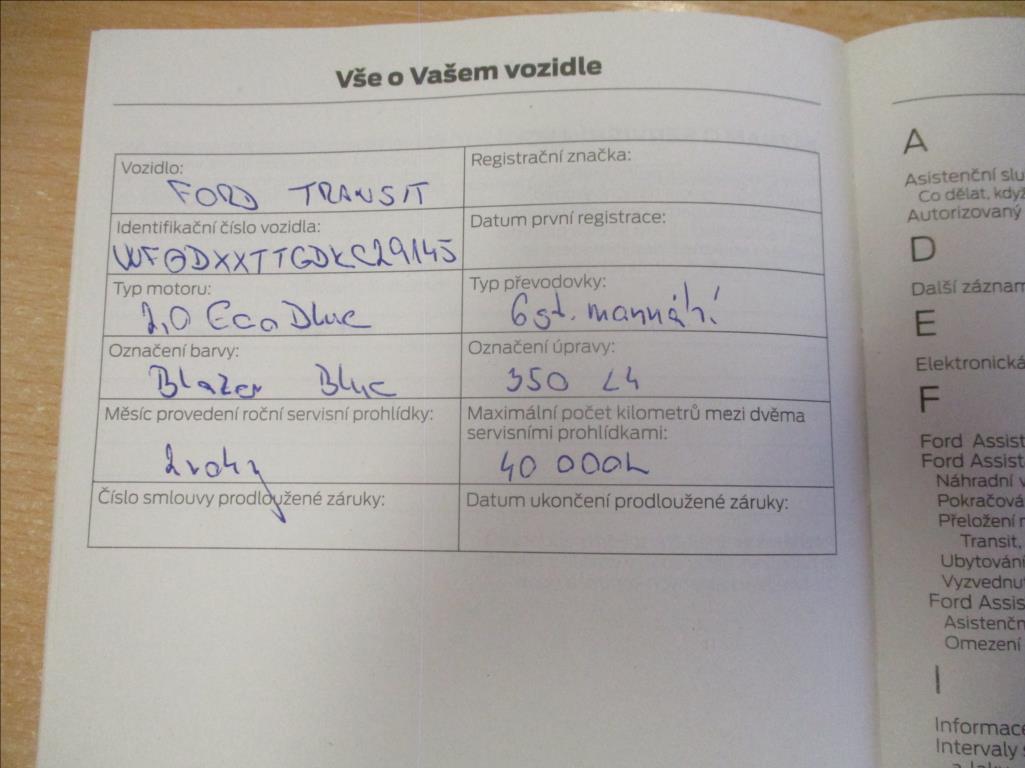 Vše o Vašem vozidle
Vozidlo:
FORD TRANSIT
Registrační značka:
Identifikační číslo vozidla:
WF0DXXTTGDKC29145
Datum první registrace:
Typ motoru:
2,0 EcoBlue
Typ převodovky:
6 st. manuální
Označení barvy:
Blazer Blue
Označení úpravy:
350 L4
Měsíc provedení roční servisní prohlídky:
2 roky
Maximální počet kilometrů mezi dvěma
servisními prohlídkami:
40 000
Číslo smlouvy prodloužené záruky:
Datum ukončení prodloužené záruky:
A
Asistenční slu
Co dělat, když
Autorizovaný
D
Další záznam
E
Elektronická
F
Ford Assist
Ford Assist
Náhradní v
Pokračová
Přeložení n
Transit,
Ubytování
Vyzvednut
Ford Assis
Asistenčn
Omezení
I
Informace
Intervaly s